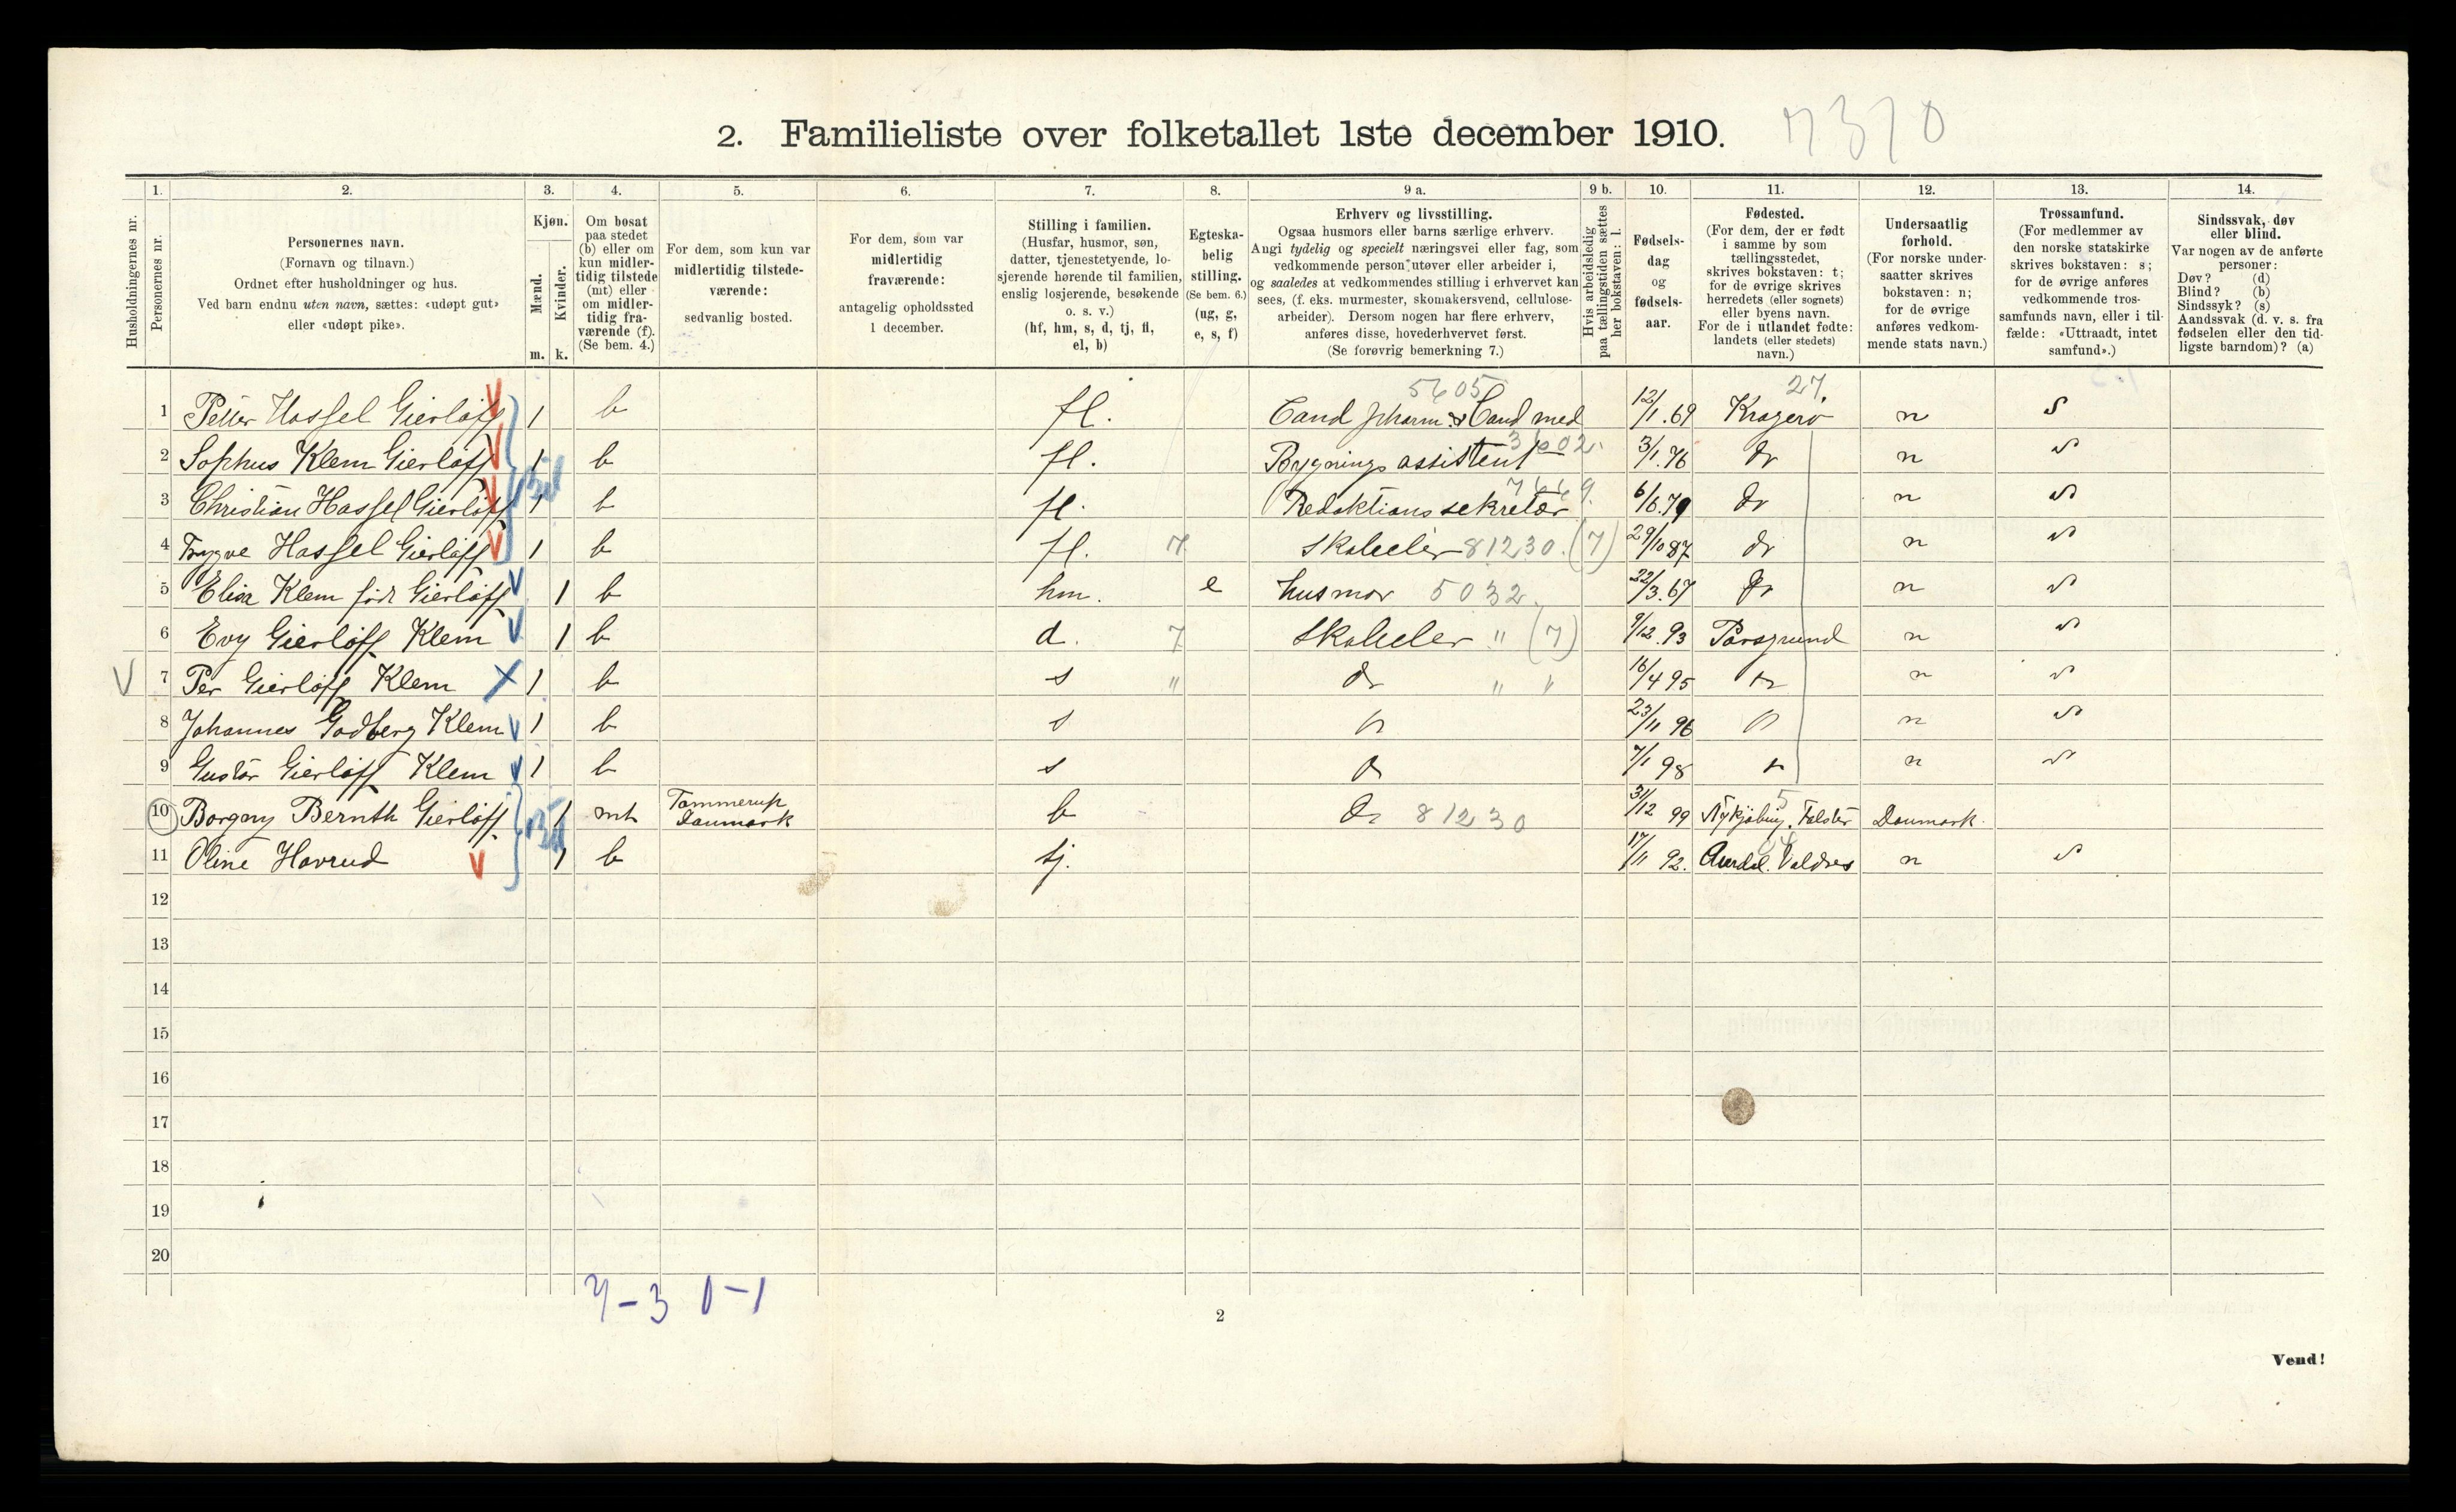 2. Familieliste over folketallet 1ste december 1910. 7370
Husholdningernes nr.
1. Personernes nr.
2. Personernes navn. (Fornavn og tilnavn.) Ordnet efter husholdninger og hus. Ved barn endnu uten navn, sættes: «udøpt gut» eller «udøpt pike».
3. Kjøn. Mænd. m. Kvinder. k.
4. Om bosat paa stedet (b) eller om kun midlertidig tilstede (mt) eller om midlertidig fraværende (f). (Se bem. 4.)
5. For dem, som kun var midlertidig tilstedeværende: sedvanlig bosted.
6. For dem, som var midlertidig fraværende: antagelig opholdssted 1 december.
7. Stilling i familien. (Husfar, husmor, søn, datter, tjenestetyende, losjerende hørende til familien, enslig losjerende, besøkende o. s. v.) (hf, hm, s, d, tj, fl, el, b)
8. Egteskabelig stilling. (Se bem. 6.) (ug, g, e, s, f)
9 a. Erhverv og livsstilling. Ogsaa husmors eller barns særlige erhverv. Angi tydelig og specielt næringsvei eller fag, som vedkommende person utøver eller arbeider i, og saaledes at vedkommendes stilling i erhvervet kan sees, (f. eks. murmester, skomakersvend, cellulosearbeider). Dersom nogen har flere erhverv, anføres disse, hovederhvervet først. (Se forøvrig bemerkning 7.)
9 b. Hvis arbeidsledig paa tællingstiden sættes her bokstaven: l.
10. Fødselsdag og fødselsaar.
11. Fødested. (For dem, der er født i samme by som tællingsstedet, skrives bokstaven: t; for de øvrige skrives herredets (eller sognets) eller byens navn. For de i utlandet fødte: landets (eller stedets) navn.)
12. Undersaatlig forhold. (For norske undersaatter skrives bokstaven: n; for de øvrige anføres vedkommende stats navn.)
13. Trossamfund. (For medlemmer av den norske statskirke skrives bokstaven: s; for de øvrige anføres vedkommende trossamfunds navn, eller i tilfælde: «Uttraadt, intet samfund».)
14. Sindssvak, døv eller blind. Var nogen av de anførte personer: Døv? (d) Blind? (b) Sindssyk? (s) Aandssvak (d. v. s. fra fødselen eller den tidligste barndom)? (a)
1 Petter Hassel Gierløff 1 b fl. Cand pharm & Cand med 5605 12/1.69 Kragerø 27. n s
2 Sophus Klem Gierløff 1 b fl. Bygningsassistent 3/1.76 do n s
3 Christian Hassel Gierløff 1 b fl. Redaktionssekretær 6/6.79 do n s
4 Trygve Hassel Gierløff 1 b fl. 7 Skoleelev 81230. (7) 29/10 87 do n s
5 Elisa Klem født Gierløff 1 b hm. e husmor 5032. 22/3.67 do n s
6 Evy Gierløff Klem 1 b d. 7 Skoleelev " (7) 9/12.93 Porsgrund n s
7 Per Gierløff Klem 1 b s " do " " 16/4 95 do n s
8 Johannes Godberg Klem 1 b s do 23/11 96 do n s
9 Gustav Gierløff Klem 1 b s do 7/1 98 do n s
10 Borgny Bernth Gierløff 1 mt Tommerup Danmark b do 81230 31/12 99 Nykjøbing. Falster 5 Danmark.
11 Oline Havrud 1 b tj. 17/11 92. Aurdal. Valdres n s
12
13
14
15
16
17
18
19
20
7-3 0-1
2
Vend!